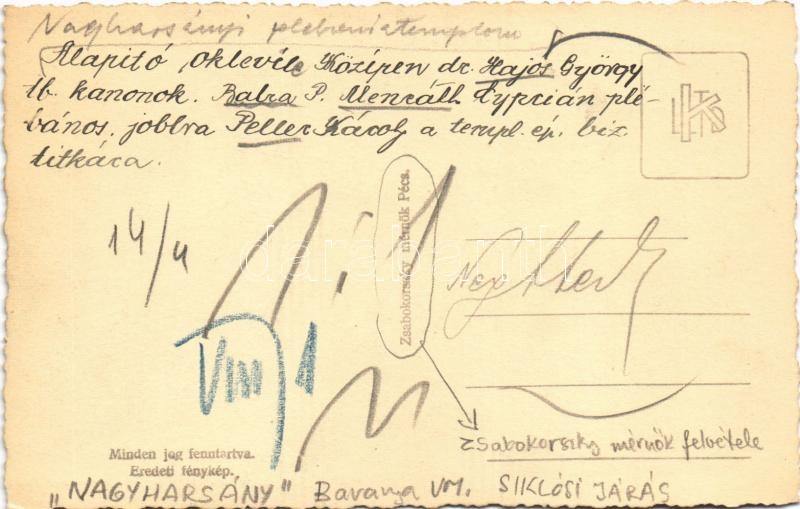 Nagyharsányi plébániatemplom
Alapitó oklevél Középen dr. Hajós György
tb. kanonok. Balra P. Menráth Cyprián plé-
bános, jobbra Peller Károly a templ. ép. biz.
titkára.
14/4
Zsabokorszky mérnök Pécs.
VIII
Zsabokorszky mérnök felvétele
Minden jog fenntartva.
Eredeti fénykép.
„NAGYHARSÁNY" Baranya VM. SIKLÓSI JÁRÁS
darabanth